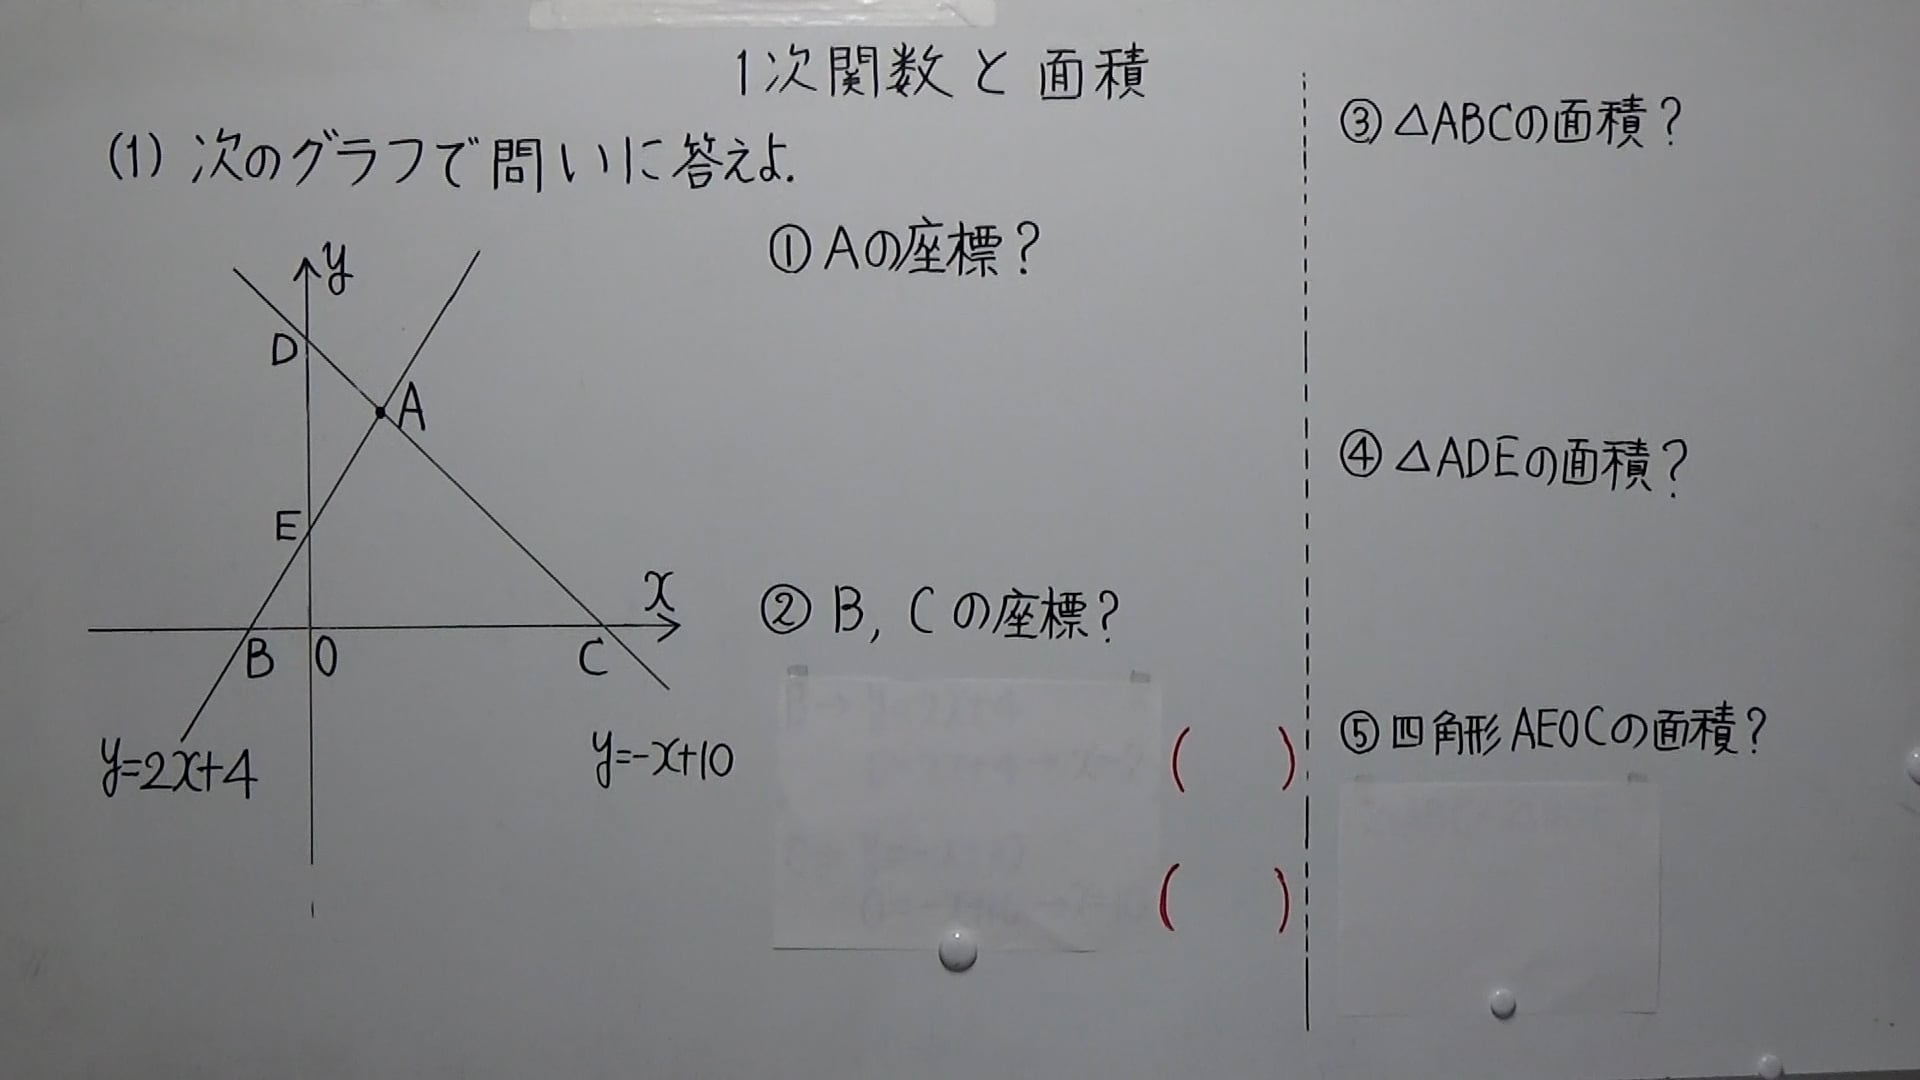 1次関数と面積
(1) 次のグラフで問いに答えよ.
y
D
A
E
x
B O C
y=2x+4
y=-x+10
① Aの座標?
② B, Cの座標?
( )
( )
③ △ABCの面積?
④ △ADEの面積?
⑤ 四角形AEOCの面積?